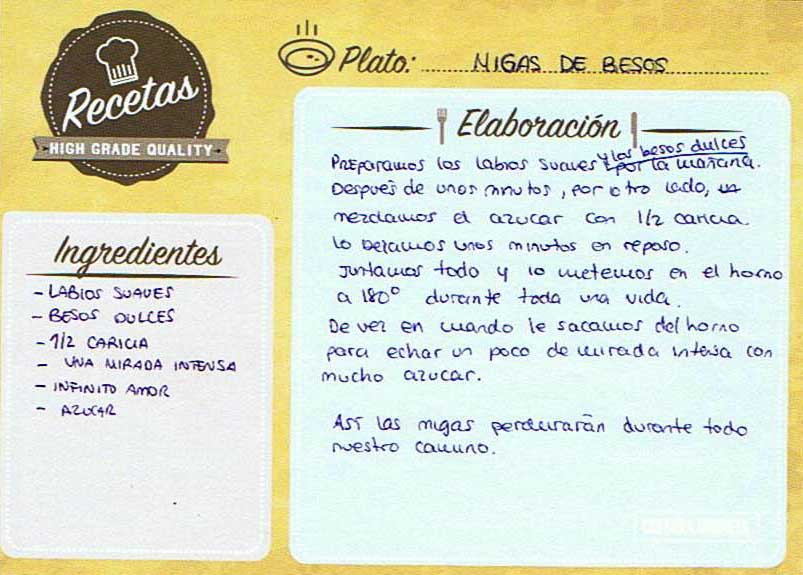 Recetas
HIGH GRADE QUALITY
Plato: MIGAS DE BESOS
Ingredientes
- LABIOS SUAVES
- BESOS DULCES
- 1/2 CARICIA
- UNA MIRADA INTENSA
- INFINITO AMOR
- AZUCAR
Elaboración
y los besos dulces
Preparamos los labios suaves por la mañana.
Después de unos minutos, por otro lado,
mezclamos el azucar con 1/2 caricia.
lo dejamos unos minutos en reposo.
Juntamos todo y lo metemos en el horno
a 180º durante toda una vida.
De vez en cuando le sacamos del horno
para echar un poco de mirada intensa con
mucho azucar.
Así las migas perdurarán durante todo
nuestro camino.